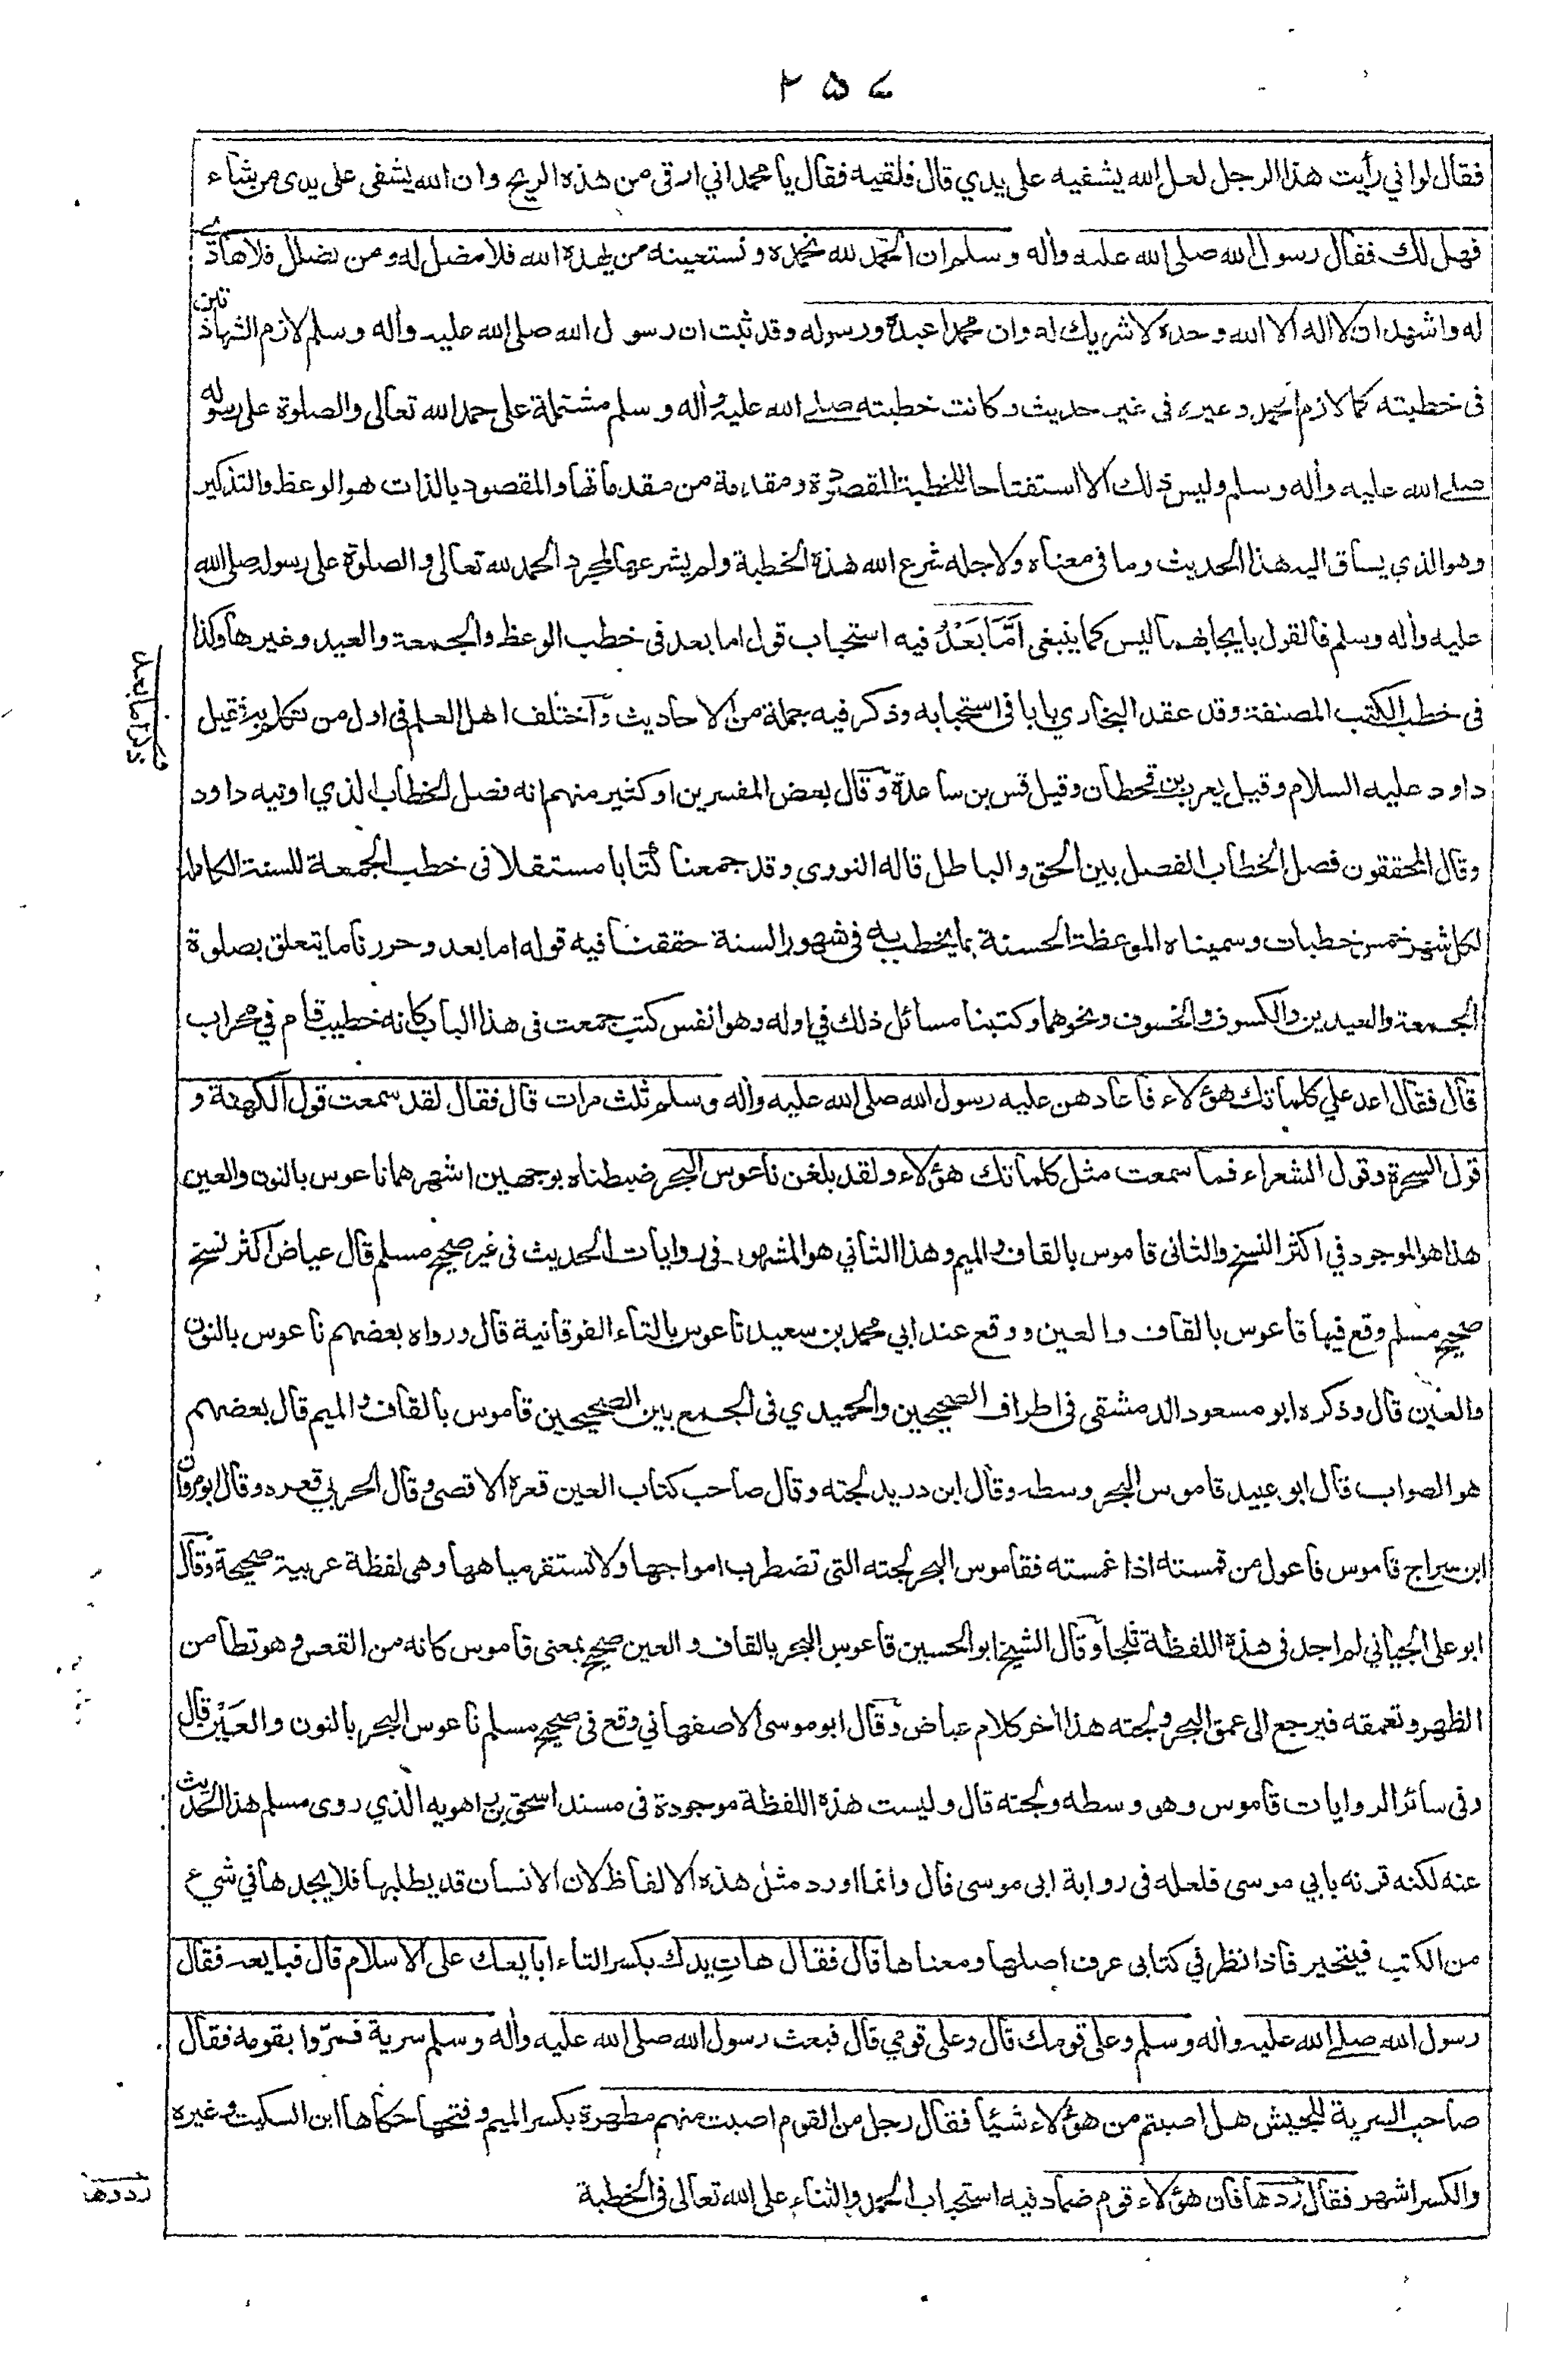 ٢٥٧
فقال لو اني رأيت هذا الرجل لعل الله يشفيه على يدي قال فلقيه فقال يا محمد اني ارقى من هذه الريح وان الله يشفى على يدى من يشاء
فهل لك فقال رسول الله صلى الله عليه واله وسلم ان الحمد لله نحمده ونستعينه من يهده الله فلا مضل له ومن يضلل فلا هادي
له واشهد ان لا اله الا الله وحده لا شريك له وان محمدا عبده ورسوله وقد ثبت ان رسول الله صلى الله عليه واله وسلم لازم الشهادتين
فى خطبته كما لازم الحمد وغيره فى غير حديث وكانت خطبته صلى الله عليه واله وسلم مشتملة على حمد الله تعالى والصلوة على رسوله
صلى الله عليه واله وسلم وليس ذلك الا استفتاحا للخطبة المقصودة ومقدمة من مقدماتها والمقصود بالذات هو الوعظ والتذكير
وهو الذي يساق اليه هذا الحديث وما فى معناه ولاجله شرع الله هذه الخطبة ولم يشرعها لمجرد الحمد لله تعالى والصلوة على رسول صلى الله
عليه واله وسلم فالقول بايجابهما ليس كما ينبغى اَمَّا بَعْدُ فيه استحباب قول اما بعد فى خطب الوعظ والجمعة والعيد وغيرها وكذا
فى خطب الكتب المصنفة وقد عقد البخاري بابا فى استحبابه وذكر فيه جملة من الاحاديث واختلف اهل العلم فى اول من تكلم به فقيل
داود عليه السلام وقيل يعرب بن قحطان وقيل قس بن ساعدة وقال بعض المفسرين او كثير منهم انه فصل الخطاب الذي اوتيه داود
وقال المحققون فصل الخطاب الفصل بين الحق والباطل قاله النووى وقد جمعنا كتابا مستقلا فى خطب الجمعة للسنة الكاملة
لكل شهر خمس خطبات وسميناه الموعظة الحسنة بما يخطب به فى شهور السنة حققنا فيه قوله اما بعد وحررنا ما يتعلق بصلوة
الجمعة والعيدين والكسوف والخسوف ونحوهما وكتبنا مسائل ذلك في اوله وهو انفس كتب جمعت فى هذا الباب كانه خطيب قام في محراب
قال فقال اعد علي كلماتك هؤلاء فاعادهن عليه رسول الله صلى الله عليه واله وسلم ثلث مرات قال فقال لقد سمعت قول الكهنة و
قول السحرة وقول الشعراء فما سمعت مثل كلماتك هؤلاء ولقد بلغن ناعوس البحر ضبطناه بوجهين اشهرهما ناعوس بالنون والعين
هذا هو الموجود في اكثر النسخ والثانى قاموس بالقاف والميم وهذا الثاني هو المشهور فى روايات الحديث فى غير صحيح مسلم قال عياض اكثر نسخ
صحيح مسلم وقع فيها قاعوس بالقاف والعين ووقع عند ابي محمد بن سعيد تاعوس بالتاء الفوقانية قال ورواه بعضهم ناعوس بالنون
والعين قال وذكره ابو مسعود الدمشقى فى اطراف الصحيحين والحميدي فى الجمع بين الصحيحين قاموس بالقاف والميم قال بعضهم
هو الصواب قال ابو عبيد قاموس البحر وسطه وقال ابن دريد لجته وقال صاحب كتاب العين قعره الاقصى وقال الحربي قعره وقال ابو مروان
ابن سراج قاموس فاعول من قمسته اذا غمسته فقاموس البحر لجته التى تضطرب امواجها ولا تستقر مياهها وهى لفظة عربية صحيحة وقال
ابو على الجياني لم اجد فى هذه اللفظة ثلجا وقال الشيخ ابو الحسين قاعوس البحر بالقاف والعين صحيح بمعنى قاموس كانه من القعس وهو تطامن
الظهر وتعمقه فيرجع الى عمق البحر ولجته هذا اخر كلام عياض وقال ابو موسى الاصفهاني وقع فى صحيح مسلم ناعوس البحر بالنون والعين قال
وفى سائر الروايات قاموس وهو وسطه ولجته قال وليست هذه اللفظة موجودة فى مسند اسحق بن راهويه الذي روى مسلم هذا الحديث
عنه لكنه قرنه بابي موسى فلعله فى رواية ابى موسى قال وانما اورد مثل هذه الالفاظ لان الانسان قد يطلبها فلا يجدها في شيء
من الكتب فيتحير فاذا نظر في كتابى عرف اصلها ومعناها قال فقال هاتِ يدك بكسر التاء ابايعك على الاسلام قال فبايعه فقال
رسول الله صلى الله عليه واله وسلم وعلى قومك قال وعلى قومي قال فبعث رسول الله صلى الله عليه واله وسلم سرية فمرّوا بقومه فقال
صاحب السرية للجيش هل اصبتم من هؤلاء شيئا فقال رجل من القوم اصبت منهم مطهرة بكسر الميم وفتحها حكاها ابن السكيت وغيره
والكسر اشهر فقال ردها فان هؤلاء قوم ضماد فيه استحباب الحمد والثناء على الله تعالى فى الخطبة
ذكر اما بعد
ردوها